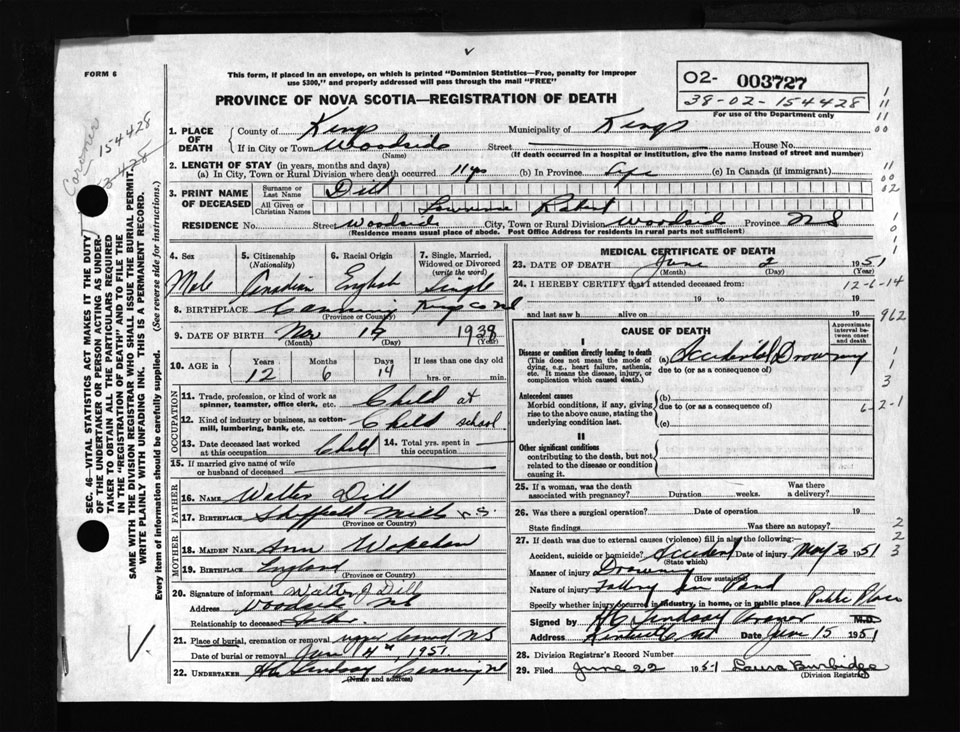 FORM 6
This form, if placed in an envelope, on which is printed "Dominion Statistics—Free, penalty for improper
use $300," and properly addressed will pass through the mail "FREE"
PROVINCE OF NOVA SCOTIA—REGISTRATION OF DEATH
02- 003727
38-02-154428
For use of the Department only
Coroner
154428
SEC. 46—VITAL STATISTICS ACT MAKES IT THE DUTY
OF THE UNDERTAKER OR PERSON ACTING AS UNDER-
TAKER TO OBTAIN ALL THE PARTICULARS REQUIRED
IN THE "REGISTRATION OF DEATH" AND TO FILE THE
SAME WITH THE DIVISION REGISTRAR WHO SHALL ISSUE THE BURIAL PERMIT.
WRITE PLAINLY WITH UNFADING INK. THIS IS A PERMANENT RECORD.
Every item of information should be carefully supplied. (See reverse side for instructions.)
1. PLACE OF DEATH
County of Kings Municipality of Kings
If in City or Town Woodside Street House No.
(Name) (If death occurred in a hospital or institution, give the name instead of street and number)
2. LENGTH OF STAY (in years, months and days)
(a) In City, Town or Rural Division where death occurred 11 yrs (b) In Province Life (c) In Canada (if immigrant)
3. PRINT NAME OF DECEASED
Surname or Last Name Dill
All Given or Christian Names Lawrence Robert
RESIDENCE No. Street Woodside City, Town or Rural Division Woodside Province NS
(Residence means usual place of abode. Post Office Address for residents in rural parts not sufficient)
4. Sex 5. Citizenship (Nationality) 6. Racial Origin 7. Single, Married, Widowed or Divorced (write the word)
Male Canadian English Single
8. BIRTHPLACE Canning Kings Co NS
(Province or Country)
9. DATE OF BIRTH Nov 19 1938
(Month) (Day) (Year)
10. AGE in Years Months Days If less than one day old
12 6 14 hrs. or min.
OCCUPATION
11. Trade, profession, or kind of work as spinner, teamster, office clerk, etc. Child at
12. Kind of industry or business, as cotton-mill, lumbering, bank, etc. Child school
13. Date deceased last worked at this occupation Child 14. Total yrs. spent in this occupation
15. If married give name of wife or husband of deceased
FATHER
16. NAME Walter Dill
17. BIRTHPLACE Sheffield Mills N.S.
(Province or Country)
MOTHER
18. MAIDEN NAME Ann Wakeham
19. BIRTHPLACE England
(Province or Country)
20. Signature of informant Walter J Dill
Address Woodside NS
Relationship to deceased Father
21. Place of burial, cremation or removal Upper Canard NS
Date of burial or removal June 4th, 1951
22. UNDERTAKER Lindsay Canning NS
(Name and address)
MEDICAL CERTIFICATE OF DEATH
23. DATE OF DEATH June 2 1951
(Month) (Day) (Year)
24. I HEREBY CERTIFY that I attended deceased from: 12-6-14
19 to 19
and last saw h alive on 19 962
CAUSE OF DEATH
Approximate interval between onset and death
I
Disease or condition directly leading to death (a) Accidental Drowning
(This does not mean the mode of dying, e.g., heart failure, asthenia, etc. It means the disease, injury, or complication which caused death.) due to (or as a consequence of)
Antecedent causes (b)
Morbid conditions, if any, giving rise to the above cause, stating the underlying condition last. due to (or as a consequence of) 6-2-1
(c)
II
Other significant conditions
contributing to the death, but not related to the disease or condition causing it.
25. If a woman, was the death associated with pregnancy? Duration weeks. Was there a delivery?
26. Was there a surgical operation? Date of operation 19
State findings Was there an autopsy?
27. If death was due to external causes (violence) fill in also the following:—
Accident, suicide or homicide? Accident Date of injury May 30 1951
(State which)
Manner of injury Drowning
(How sustained)
Nature of injury Falling in Pond
Specify whether injury occurred in industry, in home, or in public place Public Place
Signed by Lindsay M.D.
Address Kentville NS Date June 15 1951
28. Division Registrar's Record Number
29. Filed June 22 1951 Laura Burbidge
(Division Registrar)